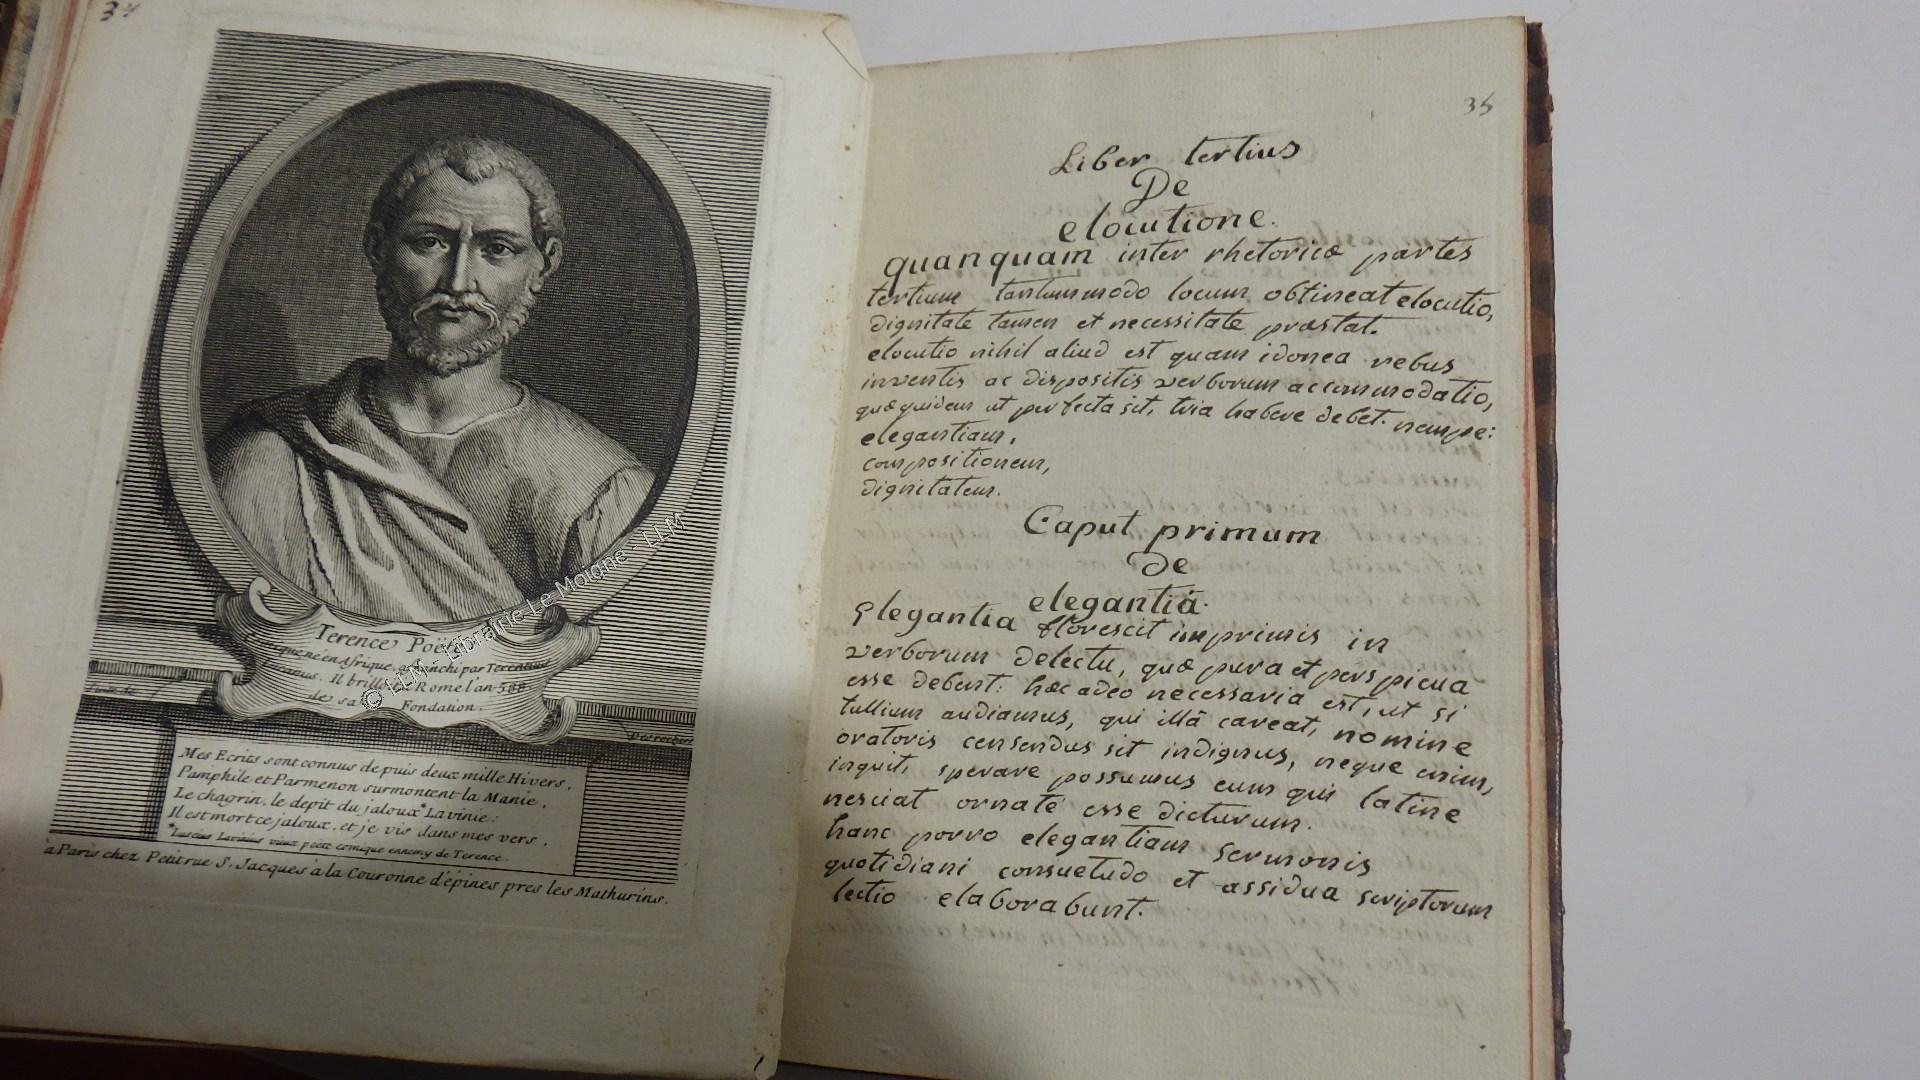 34
Terence Poëte
né en Afrique, affranchi par Terentius
Il brilloit à Rome l'an 588
de sa Fondation.
Mes Ecrits sont connus depuis deux mille Hivers,
Pamphile et Parmenon surmontent la Manie,
Le chagrin, le depit du jaloux *Lavinie:
Il est mort ce jaloux, et je vis dans mes vers.
*Luscius Lavinius vieux poëte comique ennemy de Terence.
à Paris chez Petit rue S. Jacques à la Couronne d'épines pres les Mathurins.
© LLM - Librairie Le Moigne - LLM
35
Liber tertius
De
elocutione.
quanquam inter rhetoricæ partes
tertium tantummodo locum obtineat elocutio,
dignitate tamen et necessitate præstat.
elocutio nihil aliud est quam idonea rebus
inventis ac dispositis verborum accommodatio,
quæ quidem ut perfecta sit, tria habere debet. nempe:
elegantiam,
compositionem,
dignitatem.
Caput primum
de
elegantiâ.
Elegantia florescit imprimis in
verborum delectu, quæ pura et perspicua
esse debent: hæc adeo necessaria est, ut si
tullium audiamus, qui illâ careat, nomine
oratoris censendus sit indignus, neque enim,
inquit, sperare possumus eum qui latine
nesciat ornatè esse dicturum.
hanc porro elegantiam sermonis
quotidiani consuetudo et assidua scriptorum
lectio elaborabunt.